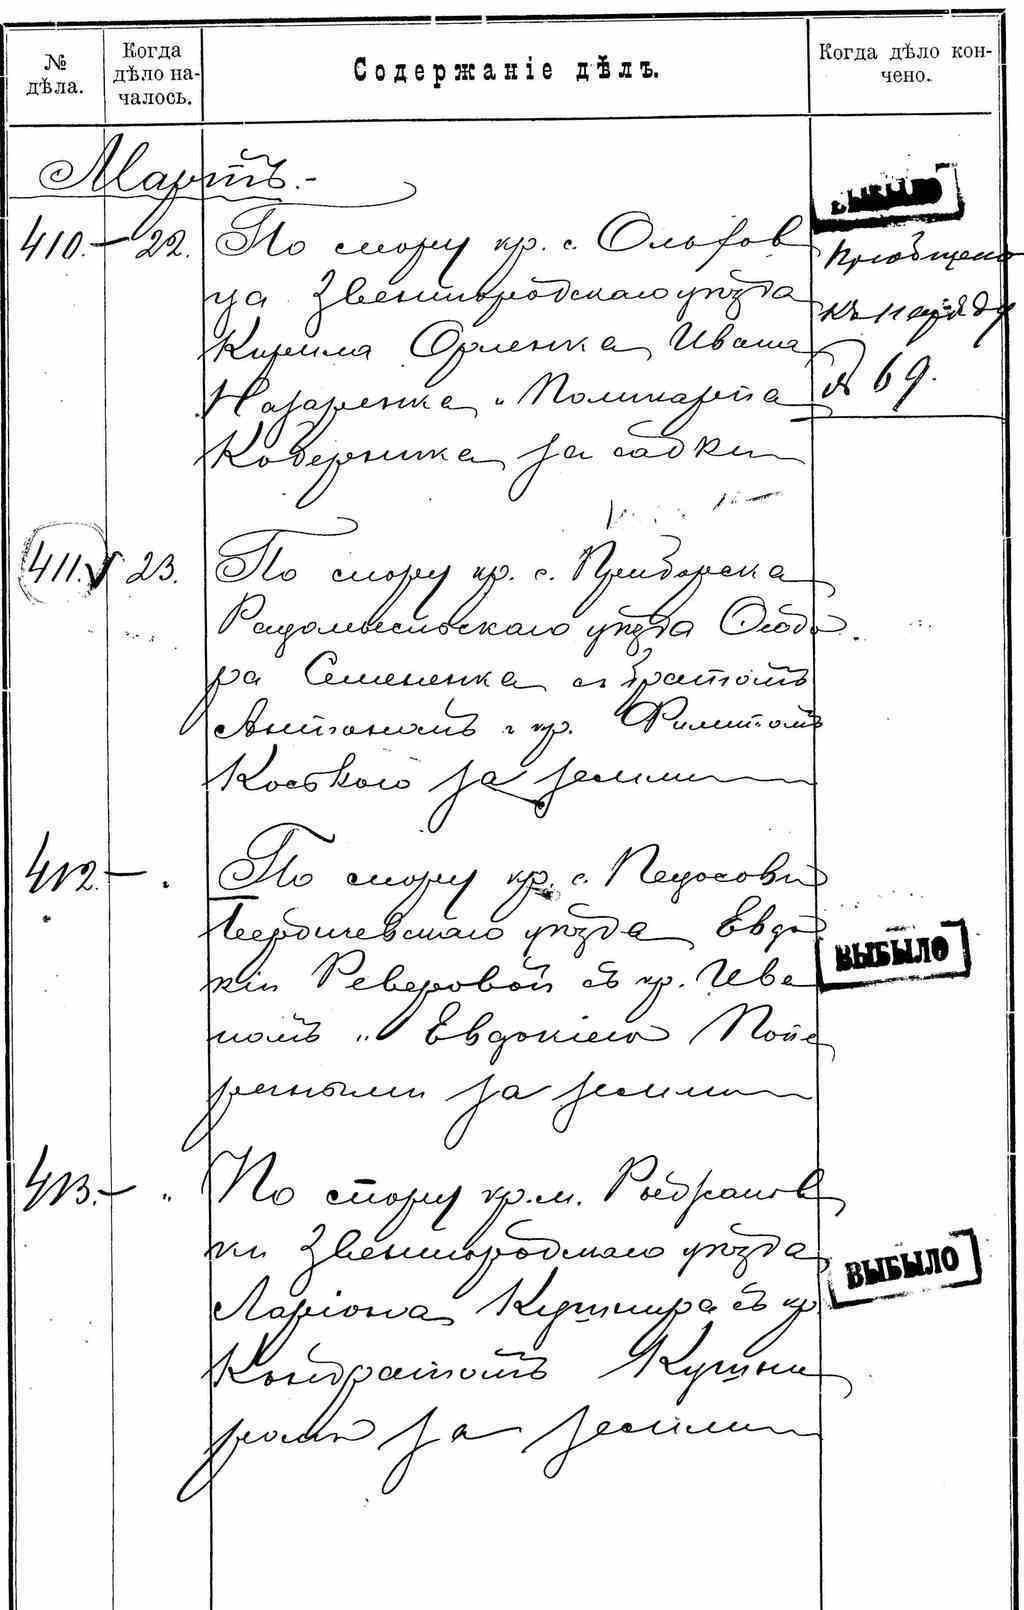 № дѣла.
Когда дѣло на-
чалось.
Содержаніе дѣлъ.
Когда дѣло кон-
чено.
Мартъ.-
ВЫБЫЛО
410.- 22. По спору кр. с. Ольхов
ца Звенигородскаго уѣзда
Кирила Орленка, Ивана
Назаренка и Поликарпа
Коберника за садки
Пріобщено
къ наряду
№ 69.
411. 23. По спору кр. с. Приборска
Радомысльскаго уѣзда Ѳеодо
ра Семененка съ братомъ
Антономъ и кр. Филипомъ
за землю
412.- " По спору кр. с.
Бердичевскаго уѣзда Евдо
кіи Реверовой съ кр. Ива
номъ и Евдокіею Попе
речными за землю
ВЫБЫЛО
413.- " По спору кр. м. Рыжанов
ки Звенигородскаго уѣзда
Ларіона Кушнира съ кр.
Кондратомъ Кушни
ромъ за землю
ВЫБЫЛО